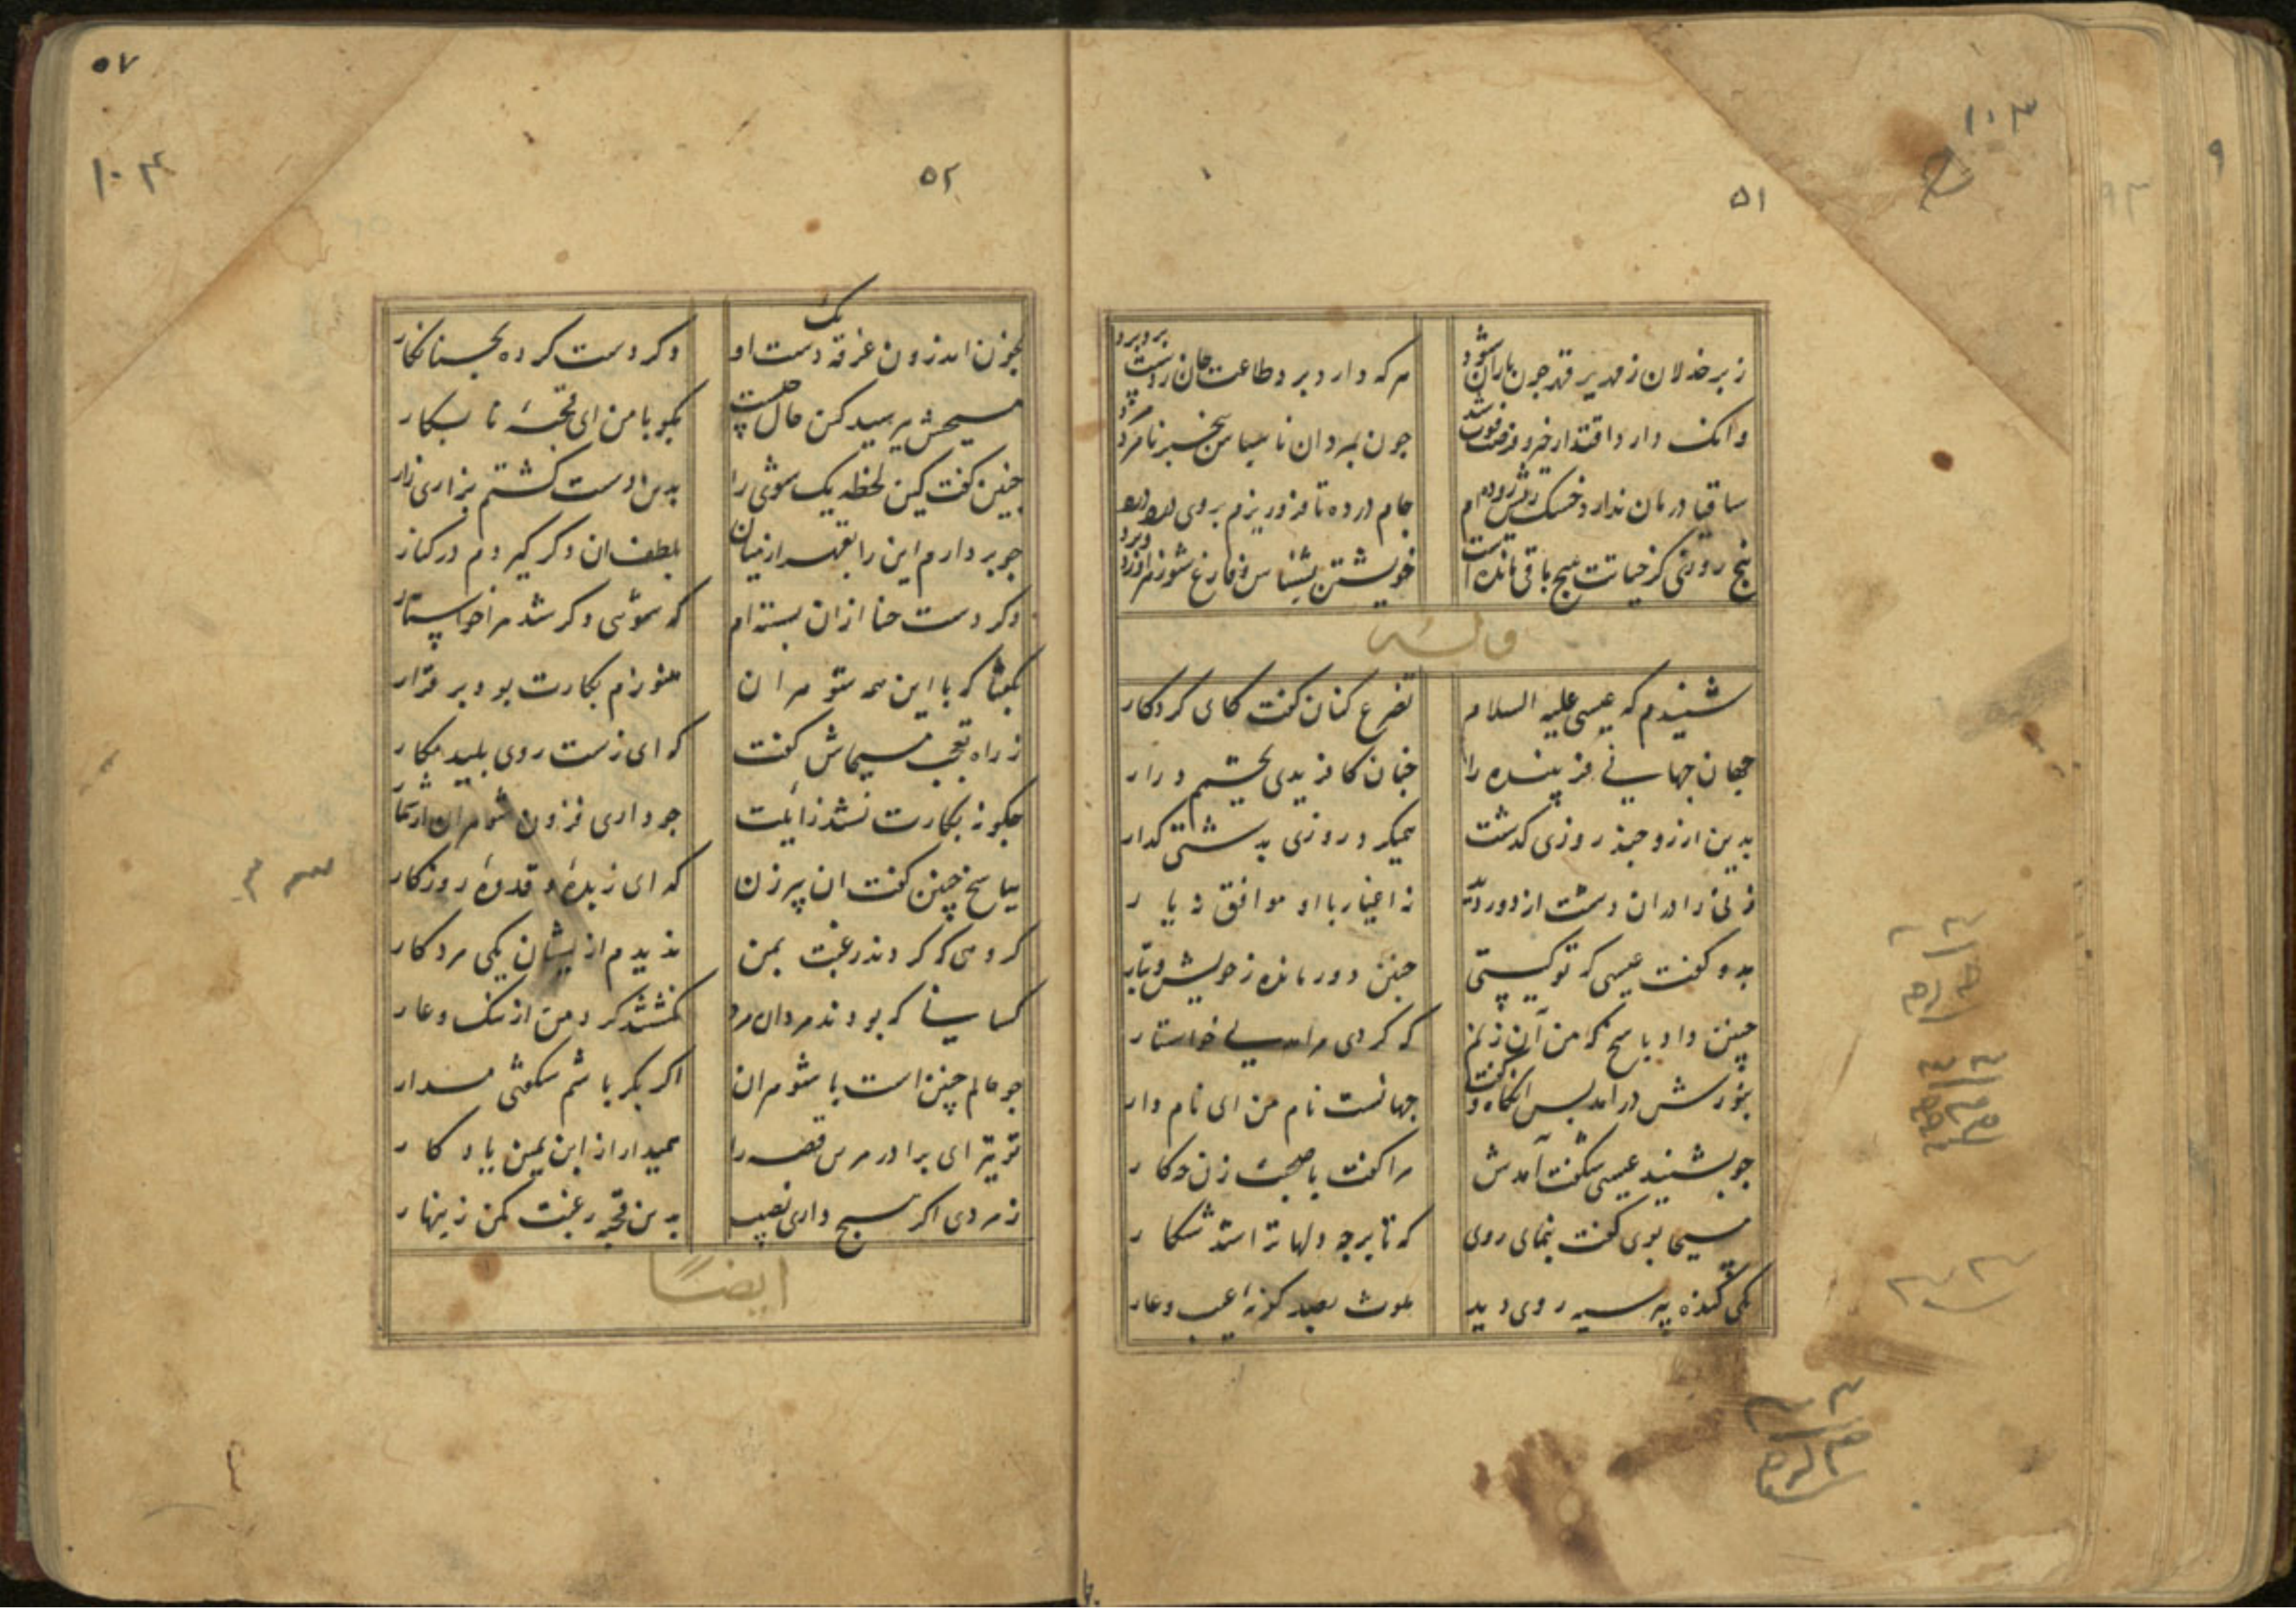 ۱۰۳
۵۱
زبر خذلان زمهریر قهر چون باران شود
هر که دارد برد طاعت جان ز دست برد برد
وانک دارد اقتدار خیر و فرصت فوت شد
چون بمردان ناسپاس
ساقیا درمان ندارد خسک ریش روده‌ام
جام در ده تا فرو ریزم بروی درد درد
پنج روزی کز حیاتت هیچ باقی مانده است
خویشتن بشناس و فارغ شو
وله
شنیدم که عیسی علیه السلام
تضرع کنان کفت کای کردکار
جهان جهانی فریبنده را
چنان کافریدی بچشمم درار
بدین ارزو چند روزی کذشت
همیکرد روزی بدشتی کذار
زنی را دران دشت از دور دید
نه اغیار با او موافق نه یار
بدو کفت عیسی که تو کیستی
چنین دور مانده ز خویش و تبار
چنین داد پاسخ که من آن زنم
که کردی مرا مدتی خواستار
بنزدش درامد پس انکاه و کفت
جهانست نام من ای نام دار
چو بشنید عیسی شکفت آمدش
مرا کفت با صحبت زن چه کار
مسیحا بوی کفت بنمای روی
که تا بر چه دلها ترا شد شکار
یکی کنده پیر سیه روی دید
ملوث بصد کونه عیب و عار
۵۷
۱۰۴
۵۲
بخون اندرون غرقه یک دست او
دکر دست کرده بحنا نکار
مسیحش بپرسید کین حال چیست
بکو با من ای قحبهٔ نابکار
چنین کفت کین لحظه یک شوی را
بدین دست کشتم بزاری زار
چو بردارم این را بقهر از میان
بلطف ان دکر کیردم در کنار
دکر دست حنا ازان بسته‌ام
که شوئی دکر شد مرا خواستار
بکفتا که با این همه شوهران
هنوزم بکارت بود بر قرار
ز راه تعجب مسیحاش کفت
که ای زشت روی پلید مکار
چکونه بکارت نشد زایلت
چو داری فزون شوهران از شمار
بپاسخ چنین کفت ان پیرزن
که ای زبدهٔ و قدوهٔ روزکار
کروهی که کردند رغبت بمن
ندیدم از ایشان یکی مرد کار
کسانی که بودند مردان مرد
نکشتند کرد من از ننک و عار
چو حالم چنین است با شوهران
اکر بکر باشم شکفتی مدار
تو نیز ای برادر مرین قصه را
همیدار از ابن یمین یادکار
ز مردی اکر هیچ داری نصیب
بدین قحبه رغبت مکن زینهار
ایضاً